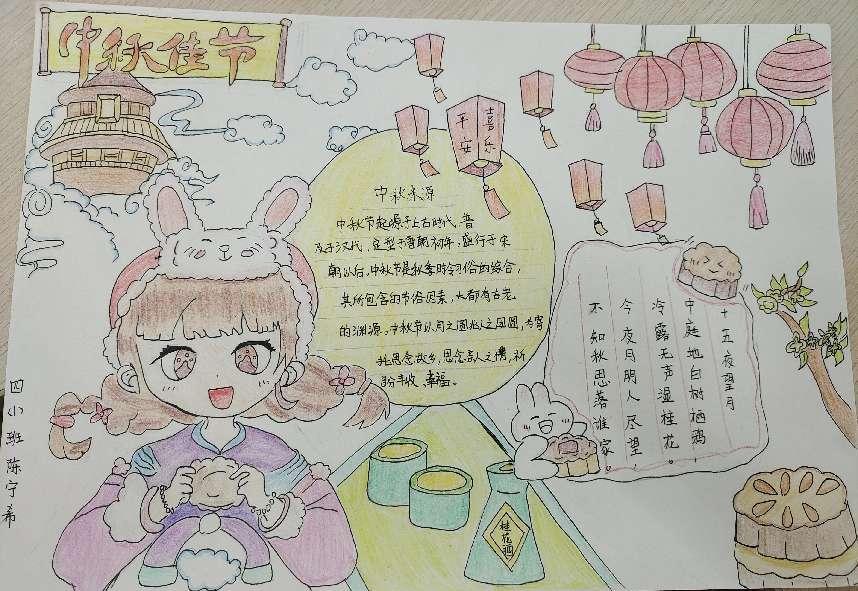 中秋佳节
平安
喜乐
中秋来源
中秋节起源于上古时代,普
及于汉代,定型于唐朝初年,盛行于宋
朝以后,中秋节是秋季时令习俗的综合,
其所包含的节俗因素,大都有古老
的渊源,中秋节以月之圆兆人之团圆,为寄
托思念故乡,思念亲人之情,祈
盼丰收、幸福。
十五夜望月
中庭地白树栖鸦,
冷露无声湿桂花。
今夜月明人尽望,
不知秋思落谁家。
桂花酒
四小班陈宁希